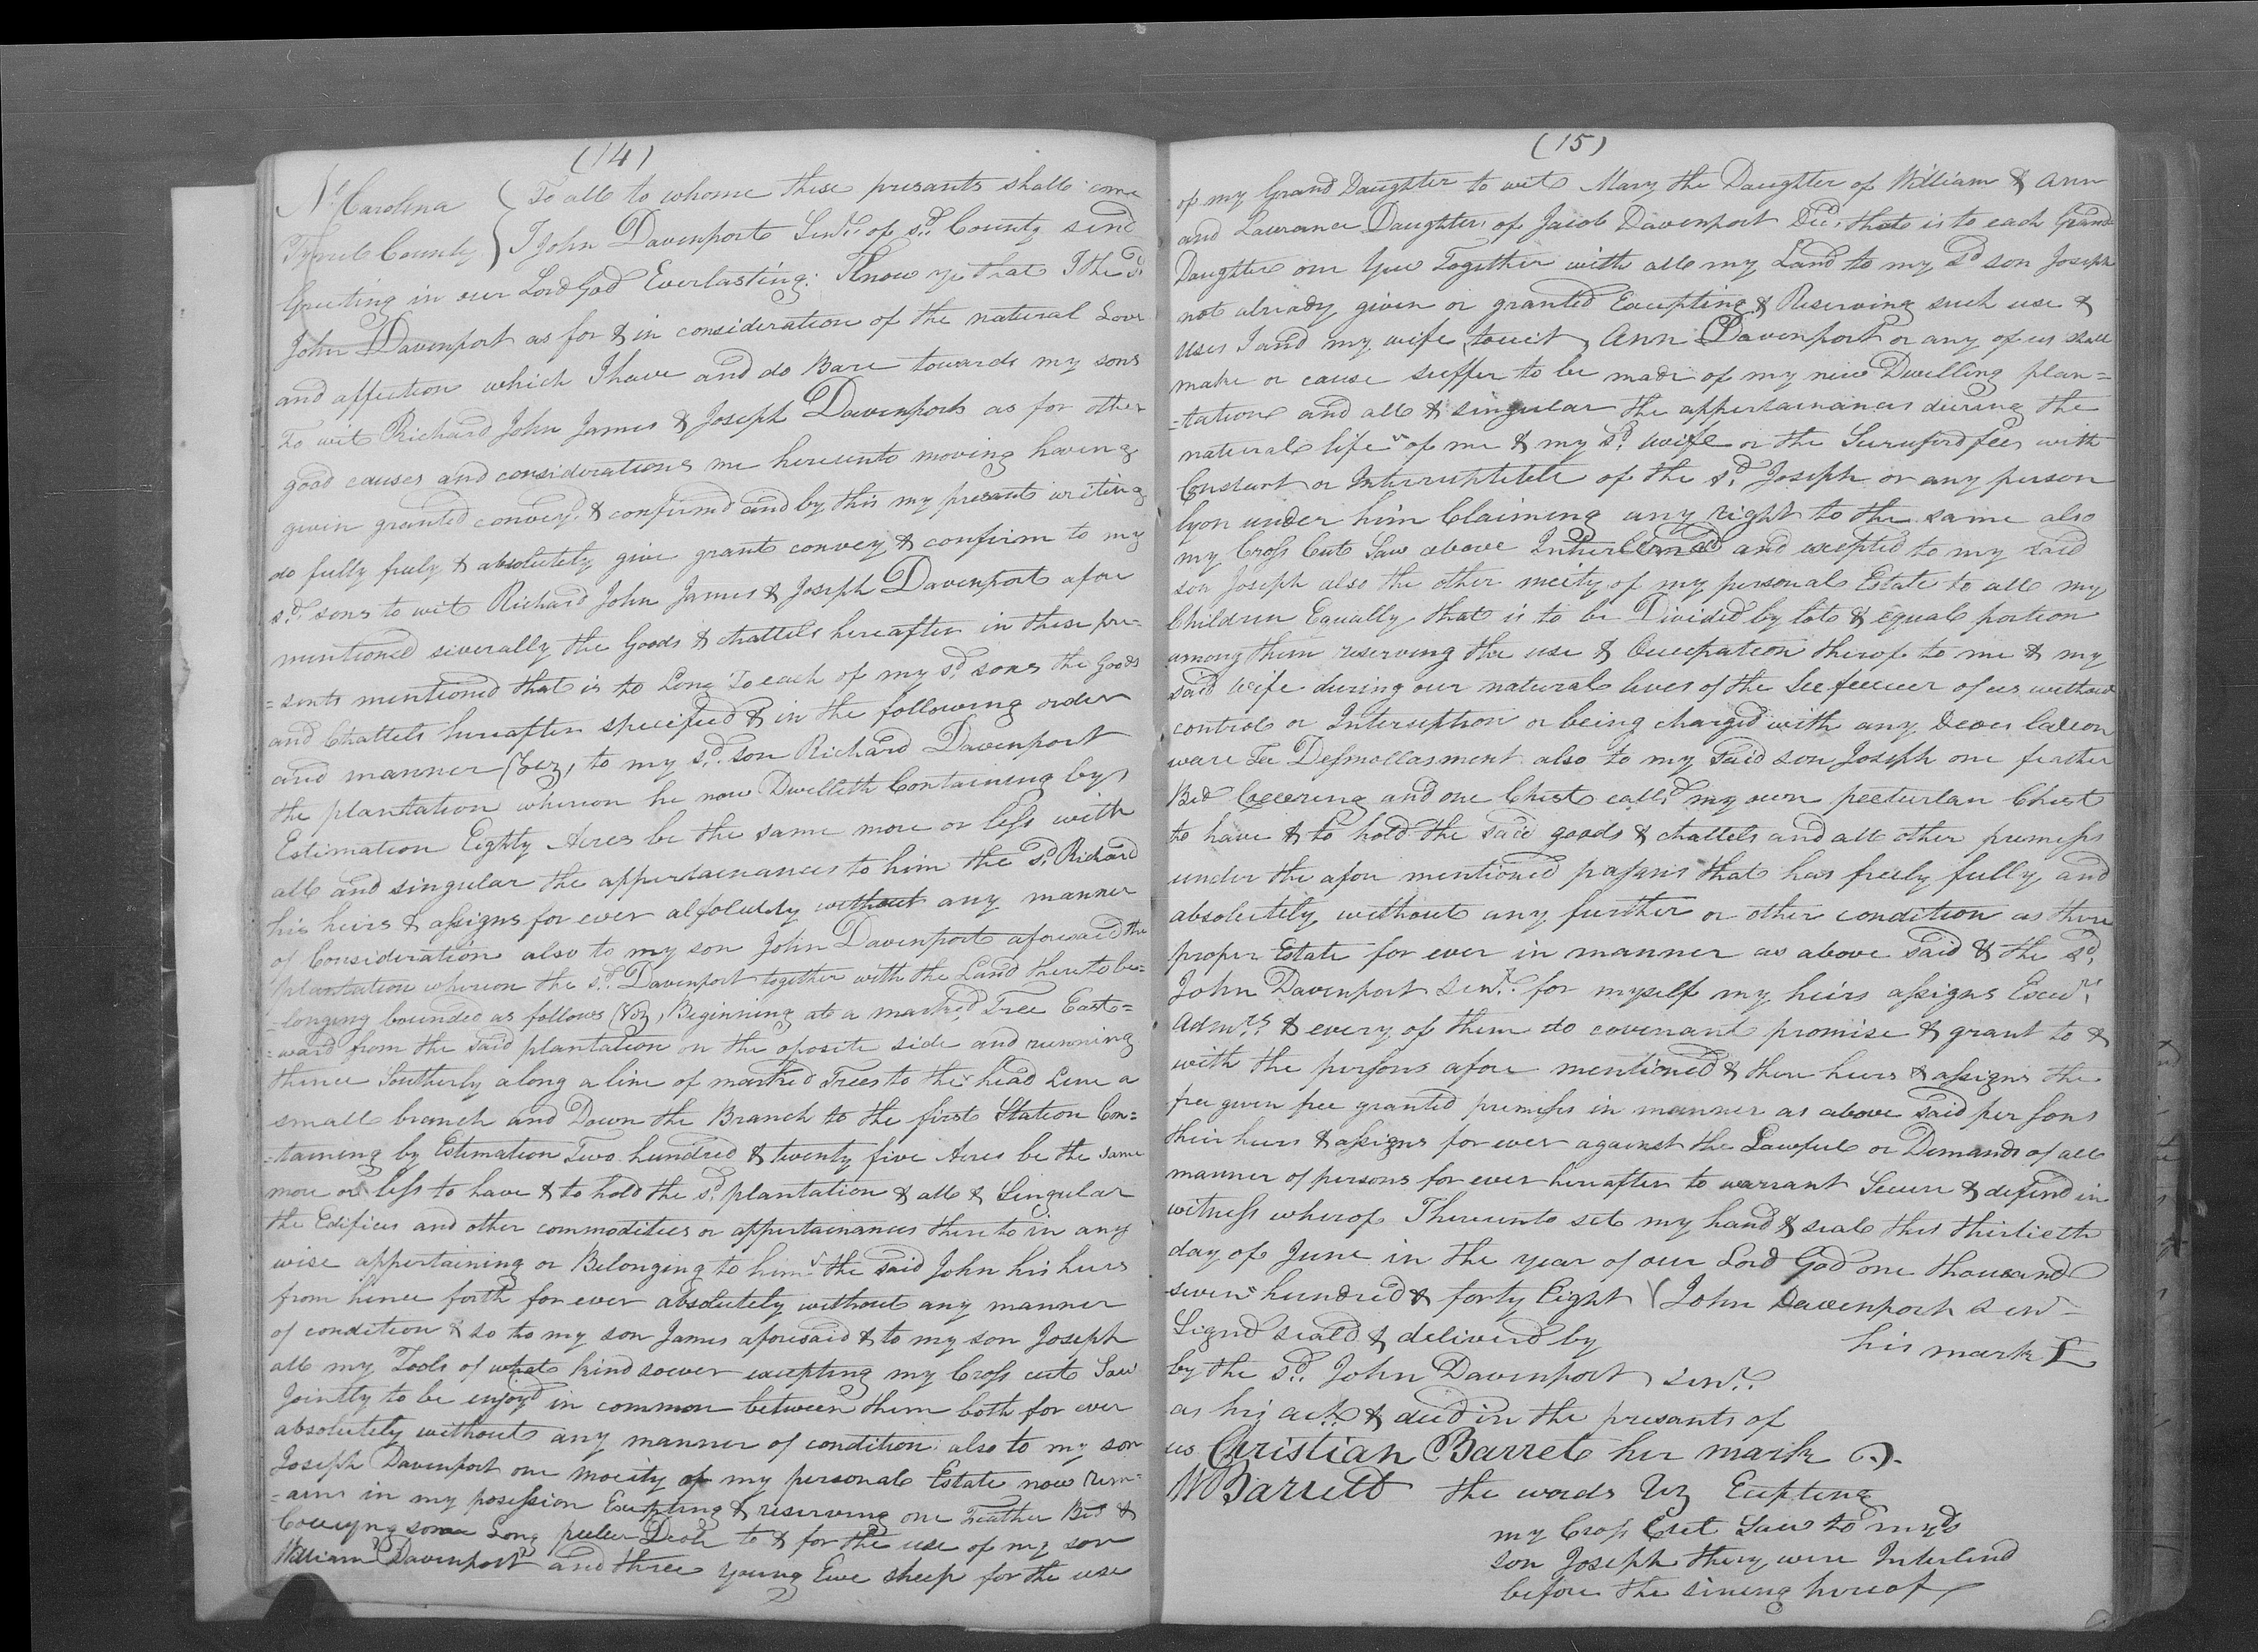 (14)
No. Carolina
Tyrrele County
To all to whome these presants shall come
I John Davenport Senr. of sd. County send
Greeting in our Lord God Everlasting: Know ye that I the sd.
John Davenport as for & in consideration of the natural Love
and affection which I have and do Bare towards my sons
to wit Richard John James & Joseph Davenport as for other
good causes and considerations me hereunto moving having
given granted convey'd & confirmd and by this my presants writing
do fully freely & absolutely give grant convey & confirm to my
sd. sons to wit Richard John James & Joseph Davenport afore
mentioned severally the Goods & chattels hereafter in these pre=
=sents mentioned that is to Long To each of my sd. sons the Goods
and Chattels hereafter specified & in the following order
and manner (Viz, to my sd. son Richard Davenport
the plantation whereon he now Dwelleth Containing by
Estimation Eighty Acres be the same more or less with
all and singular the appertainances to him the sd. Richard
his heirs & assigns for ever absolutely without any manner
of Consideration also to my son John Davenport aforesaid the
plantation whereon the sd. Davenport together with the Land thereto be=
=longing bounded as follows (Viz, Beginning at a marked Tree East=
=ward from the said plantation on the oposite side and running
thence Southerly along a line of marked Trees to the head Line a
small branch and Down the Branch to the first Station Con=
=taining by Estimation Two hundred & twenty five Acres be the same
more or less to have & to hold the sd. plantation & all & Singular
the Edifices and other commodities or appertainances thereto in any
wise appertaining or Belonging to him the said John his heirs
from hence forth for ever absolutely without any manner
of condition & so to my son James aforesaid & to my son Joseph
all my Tools of what kind soever excepting my Cross cut Saw
Jointly to be enjoyd in common between them both for ever
absolutely without any manner of condition: also to my son
Joseph Davenport one moeity of my personal Estate now rem=
=ains in my posession Excepting & reserving one Feather Bed &
some Long to & for the use of my son
William Davenport and three young Ewe sheep for the use
(15)
of my Grand Daughter to wit Mary the Daughter of William & Ann
and Laurance Daughter of Jacob Davenport Decd. that is to each Grand
Daughter one Yew Together with all my Land to my sd son Joseph
not already given or granted Excepting & Reserving such use &
uses I and my wife towit Ann Davenport or any of us shall
make or cause suffer to be made of my new Dwelling plan=
=tation and all & singular the appertainances during the
natural life of me & my sd. wife or the with
or of the sd. Joseph or any person
under him Claiming any right to the same also
my Cross Cut Saw above Interlined and excepted to my said
son Joseph also the other meity of my personal Estate to all my
Children Equally that is to be Divided by lot & Equal portion
among them reserving the use & Occupation therof to me & my
said wife during our natural lives of the of us without
control or Interuption or being charged with any
ware also to my said son Joseph one feather
Bed Covering and one Chest calld my own Chest
to have & to hold the said goods & chattels and all other premises
under the afore mentioned that has freely fully and
absolutely without any further or other condition as there
proper Estate for ever in manner as above said & the sd.
John Davenport Senr. for myself my heirs assigns Execrs.
Admrs. & every of them do covenant promise & grant to &
with the persons afore mentioned & there heirs & assigns the
free given free granted premises in manner as above said persons
their heirs & assigns for ever against the Lawful or Demands of all
manner of persons for ever hereafter to warrant Secure & defend in
witness wherof I hereunto set my hand & seal this thirtieth
day of June in the year of our Lord God one thousand
seven hundred & forty Eight John Davenport Senr
Signd seald & deliverd by his mark
by the sd. John Davenport Senr.
as his act & deed in the presants of
us Christian Barret her mark
W Barrett the words Viz Excepting
my Cross Cut Saw to my sd
son Joseph they were Interlind
before the sining hereof